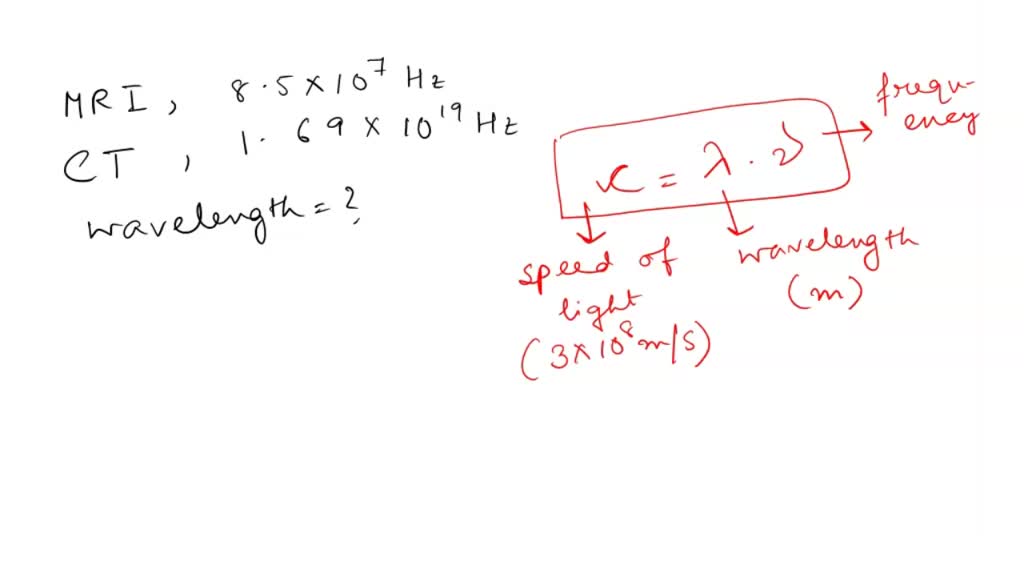 MRI, 8.5 × 10⁷ Hz
CT, 1.69 × 10¹⁹ Hz
wavelength = ?
c = λ . ν
frequ-
ency
speed of
light
(3×10⁸ m/s)
wavelength
(m)